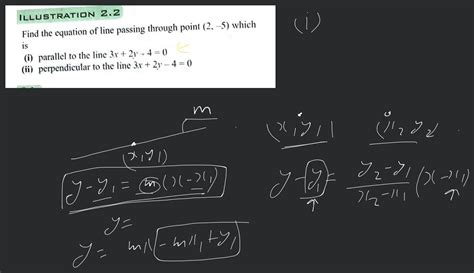 ILLUSTRATION 2.2
Find the equation of line passing through point (2, –5) which
is
(i) parallel to the line 3x + 2y – 4 = 0
(ii) perpendicular to the line 3x + 2y – 4 = 0
(i)
m
(x1 y1)
y - y1 = m(x - x1)
y =
y = mx - mx1 + y1
(x1 y1) (x2 y2)
y - y1 = y2 - y1 / x2 - x1 (x - x1)